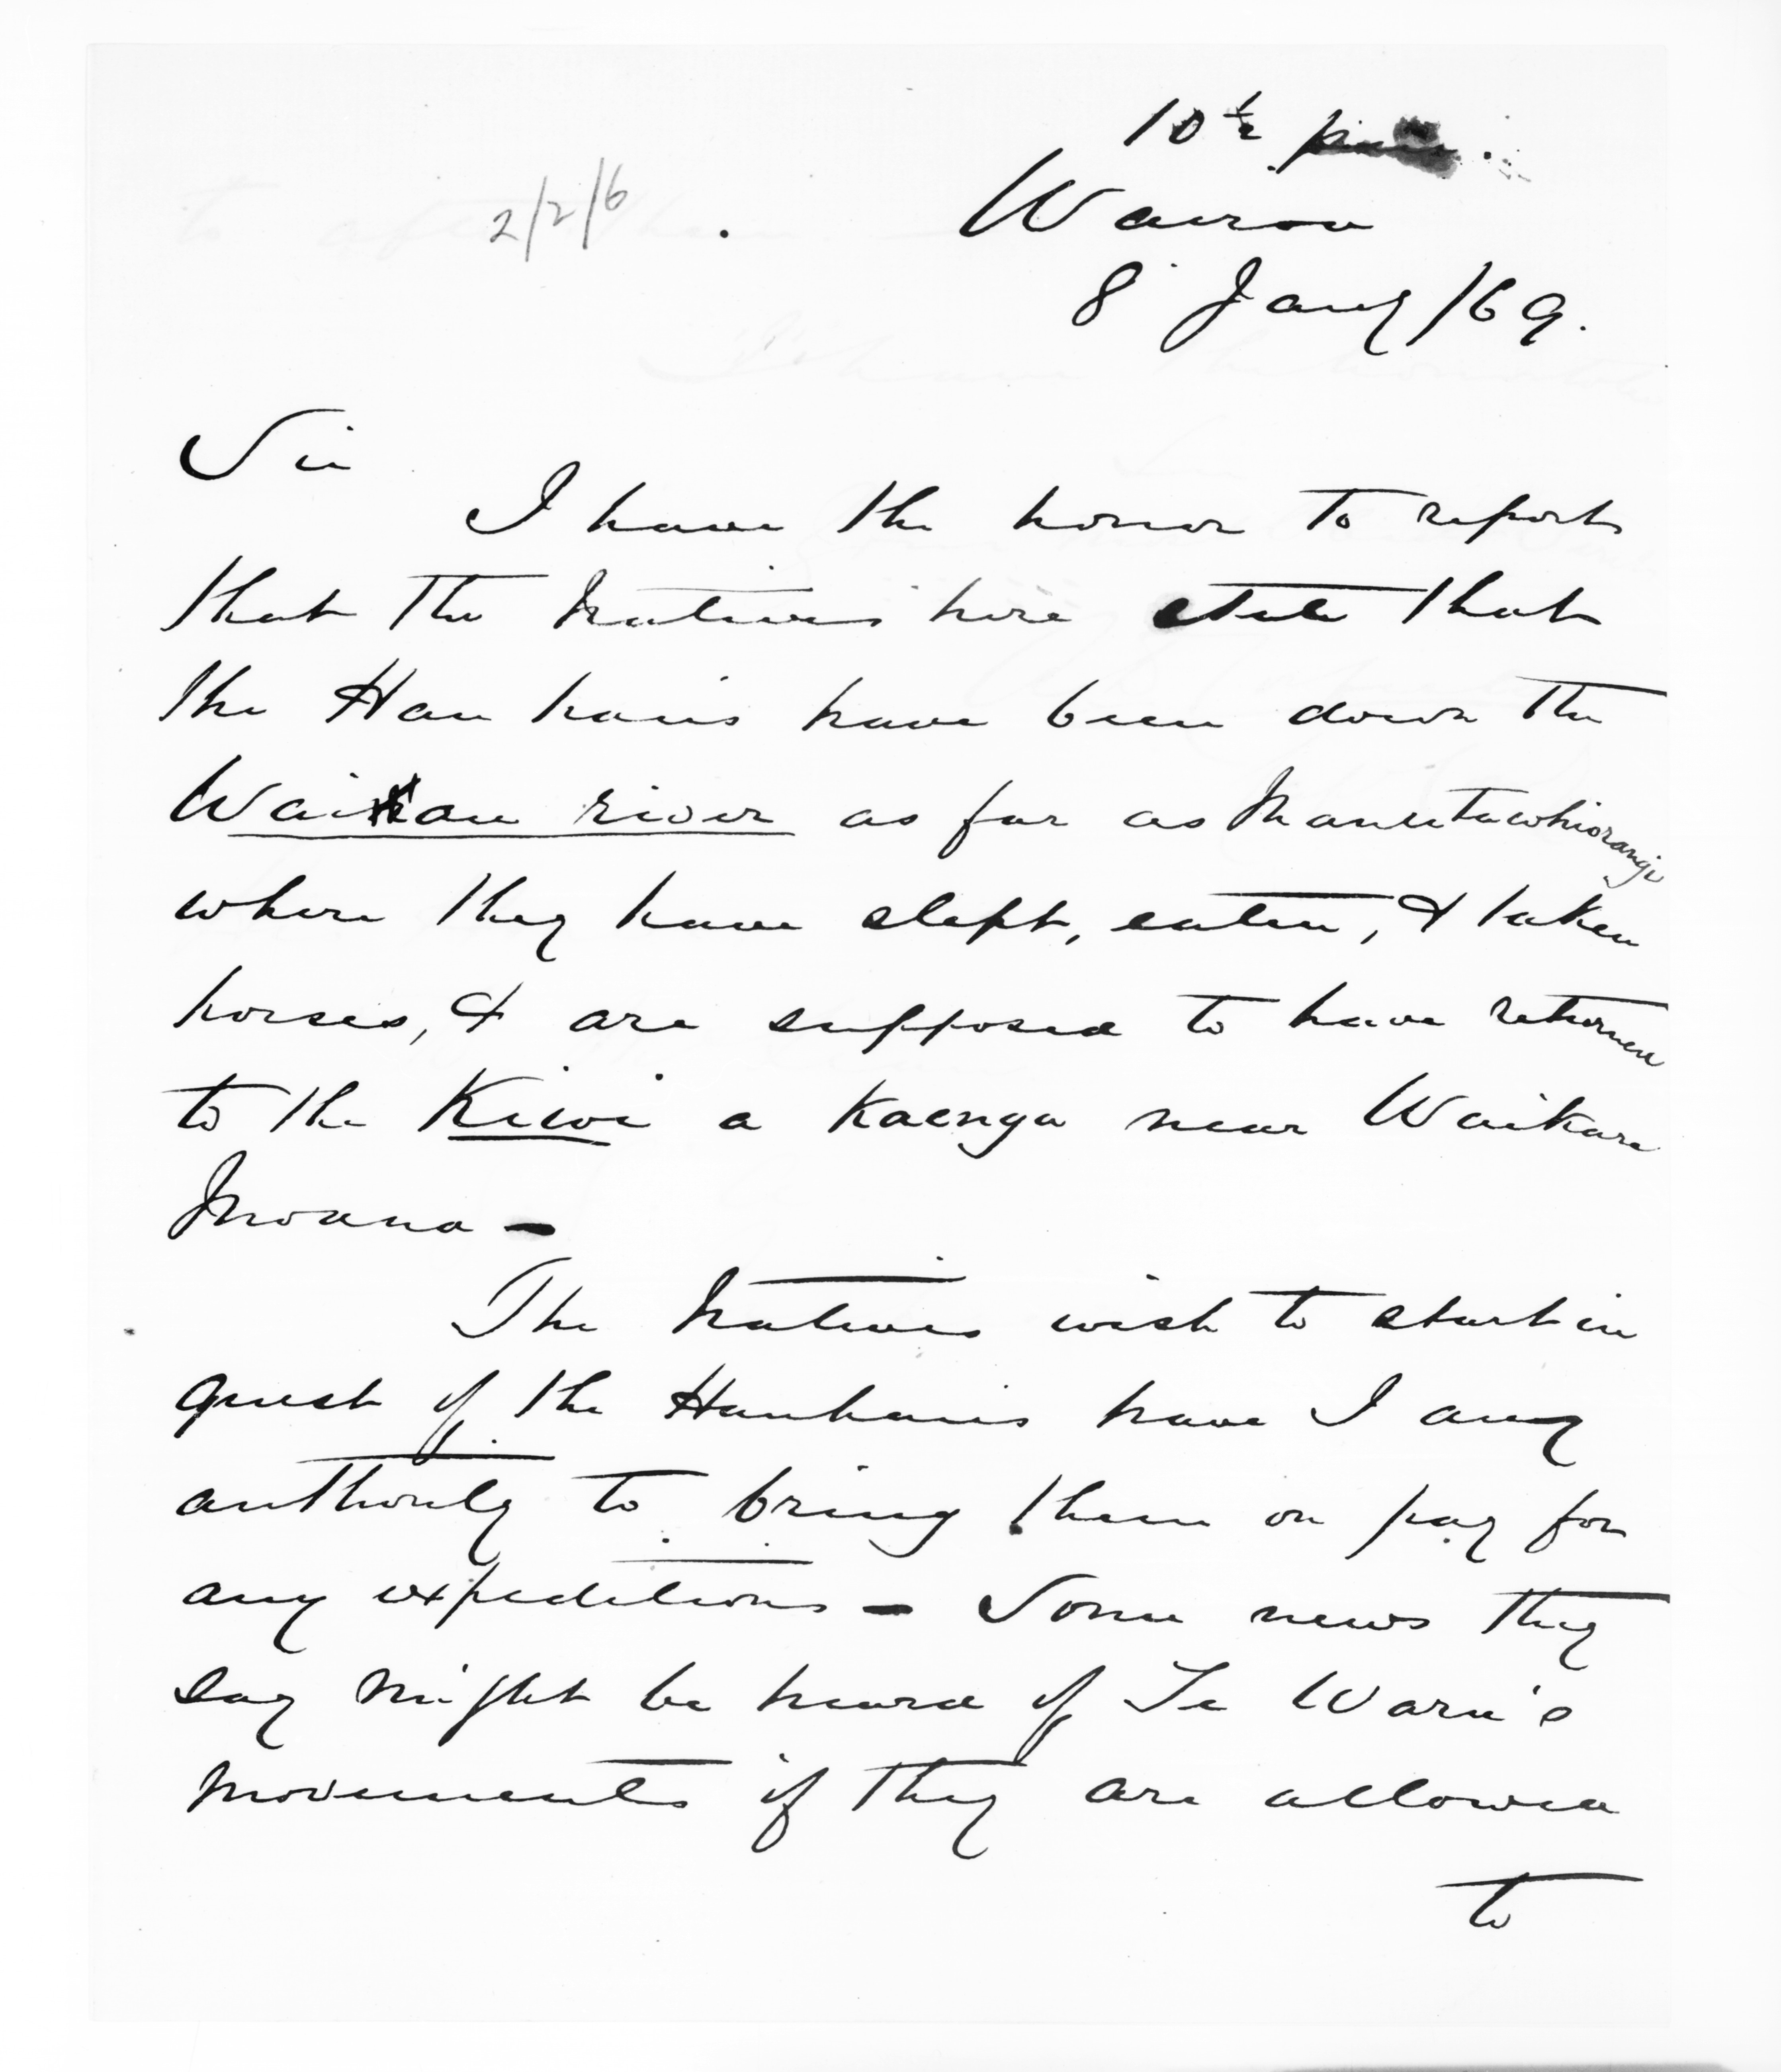 10½ p.m.
2/2/6
Wairoa
8 Jany /69.
Sir
I have the honor to report
that the Natives here state that
the Hau haus have been down the
Waiau river as far as
where they have slept, eaten, & taken
horses, & are supposed to have returned
to the Kiwi a Kaenga near Waikare
Moana -
The Natives wish to start in
quest of the Hauhaus have I any
authority to bring them on pay for
any expeditions - Some news they
say might be heard of Te Waru's
movements if they are allowed
to